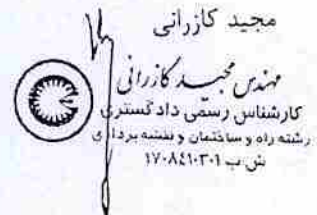 مجید کازرانی
مهندس مجید کازرانی
کارشناس رسمی دادگستری
رشته راه و ساختمان و نقشه برداری
ش ب ۱۷۰۸۴۱۰۳۰۱